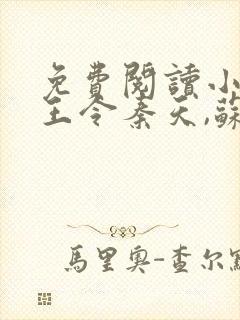 免費閱讀小
王令秦天,蘇
馬里奧-查尔